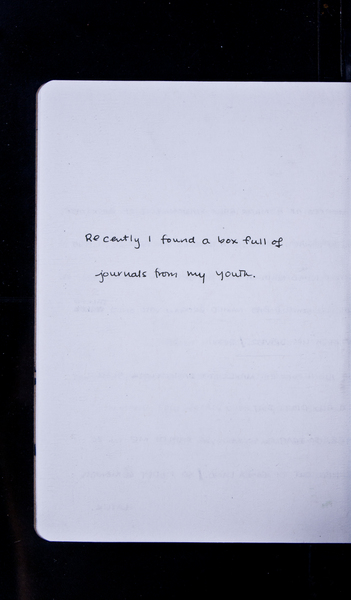 Recently I found a box full of
journals from my youth.